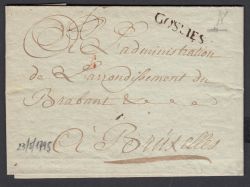 GOSLIES
A L'administration
de L'arrondissement du
Brabant & & &
À Bruxelles
23/5/1795